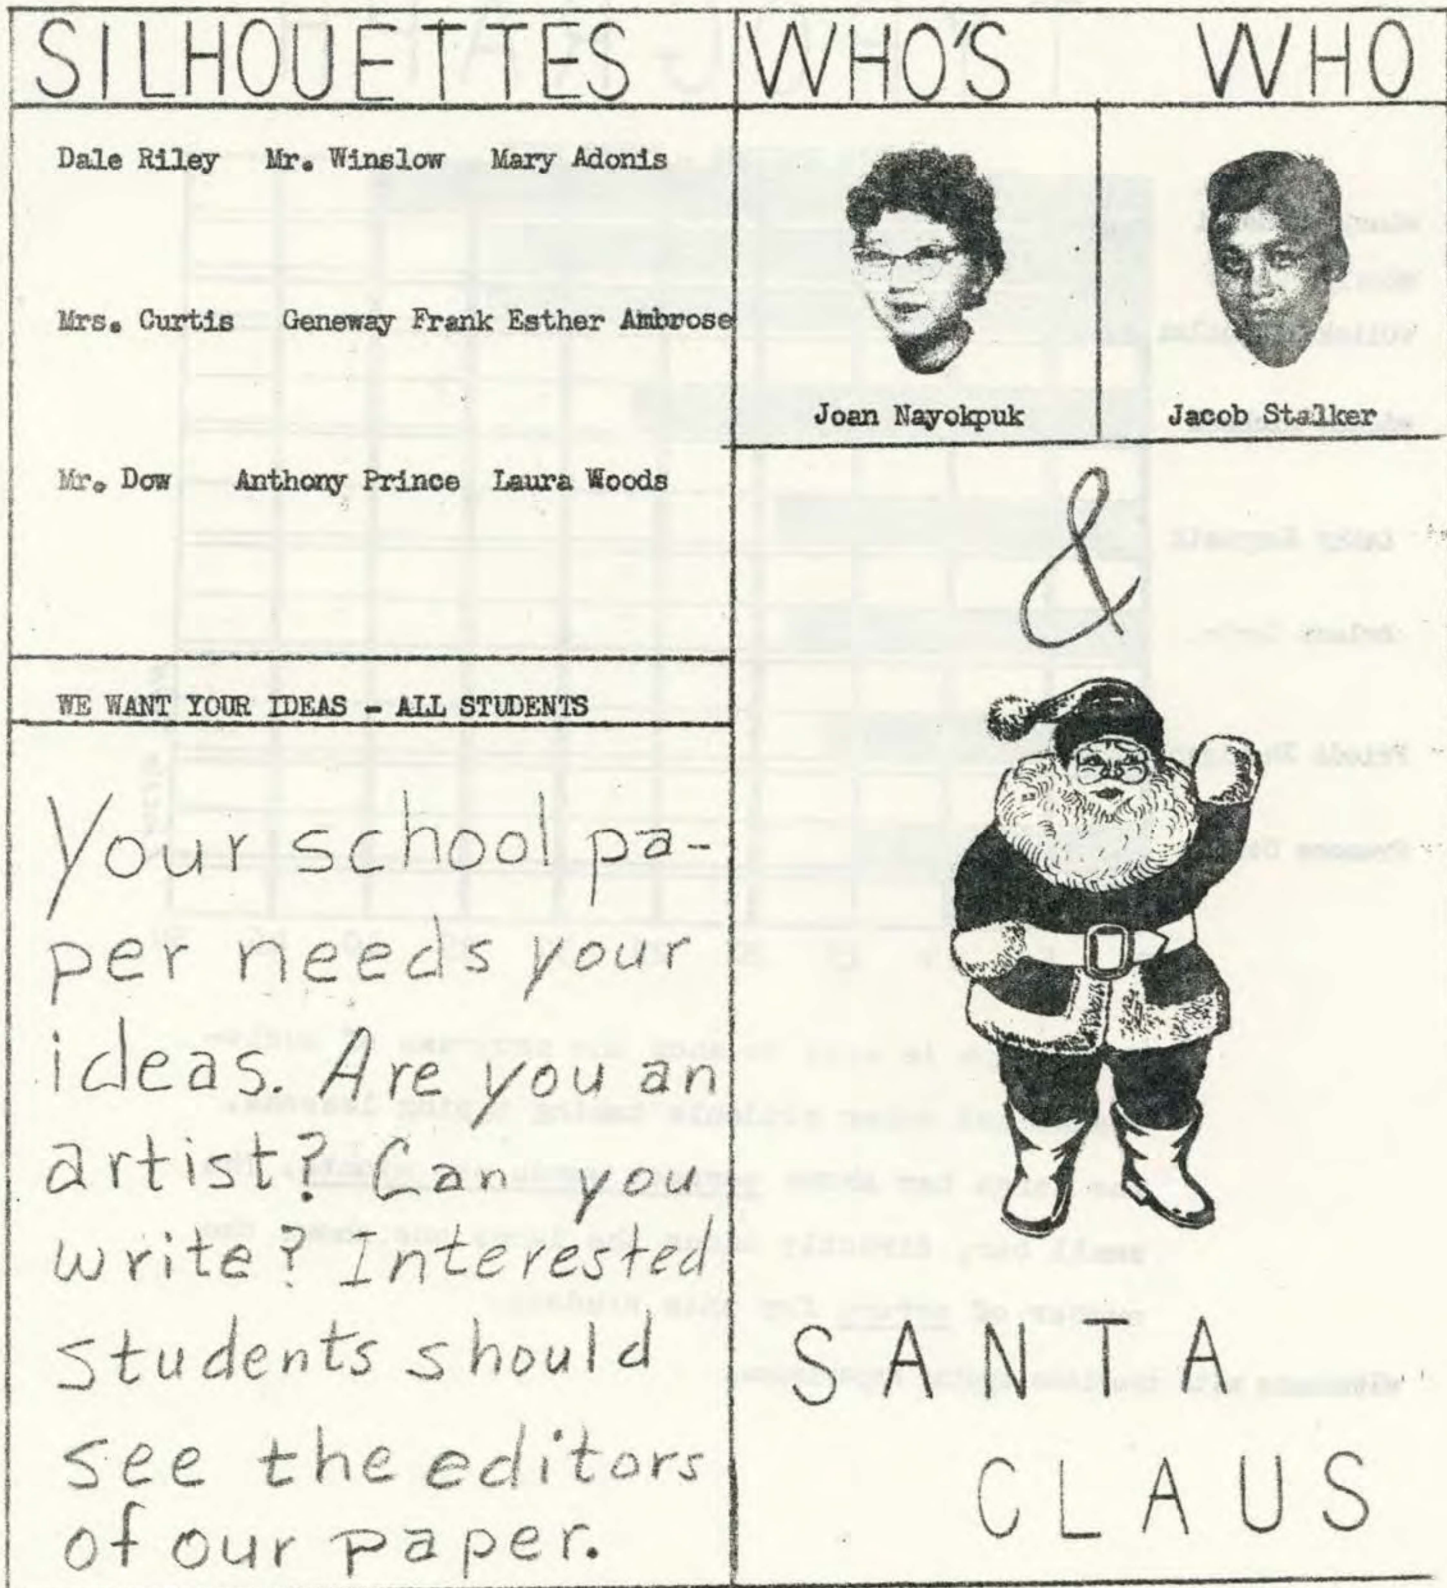 SILHOUETTES
Dale Riley Mr. Winslow Mary Adonis
Mrs. Curtis Geneway Frank Esther Ambrose
Mr. Dow Anthony Prince Laura Woods
WE WANT YOUR IDEAS - ALL STUDENTS
Your school pa-
per needs your
ideas. Are you an
artist? Can you
write? Interested
students should
see the editors
of our paper.
WHO'S WHO
Joan Nayokpuk
Jacob Stalker
&
SANTA
CLAUS